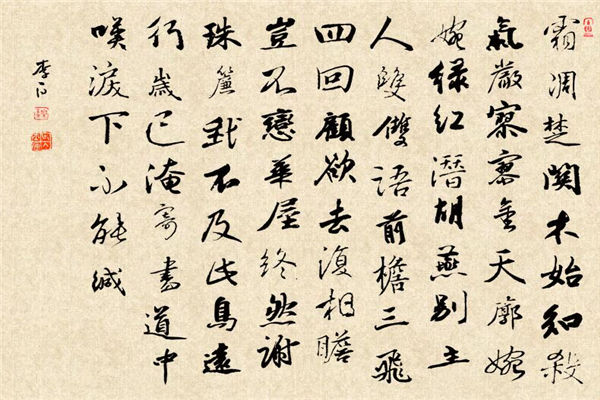 霜凋楚關木始知殺
氣嚴寥寥金天廓婉
婉緑紅潛胡燕别主
人雙雙語前檐三飛
四回顧欲去復相瞻
豈不戀華屋終然謝
珠簾我不及此鳥遠
行歲已淹寄書道中
嘆淚下不能緘
李白